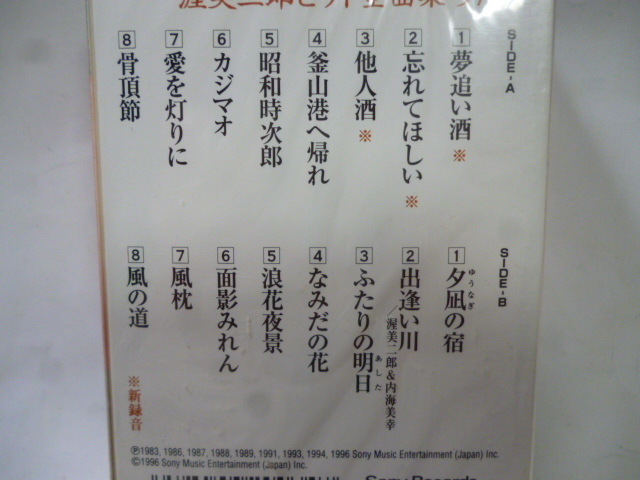 SIDE-A
1 夢追い酒 ※
2 忘れてほしい ※
3 他人酒 ※
4 釜山港へ帰れ
5 昭和時次郎
6 カジマオ
7 愛を灯りに
8 骨頂節
SIDE-B
1 夕凪の宿
ゆうなぎ
2 出逢い川
／渥美二郎&内海美幸
3 ふたりの明日
あした
4 なみだの花
5 浪花夜景
6 面影みれん
7 風枕
8 風の道
※新録音
Ⓟ1983, 1986, 1987, 1988, 1989, 1991, 1993, 1994, 1996 Sony Music Entertainment (Japan) Inc.
©1996 Sony Music Entertainment (Japan) Inc.
Sony Records